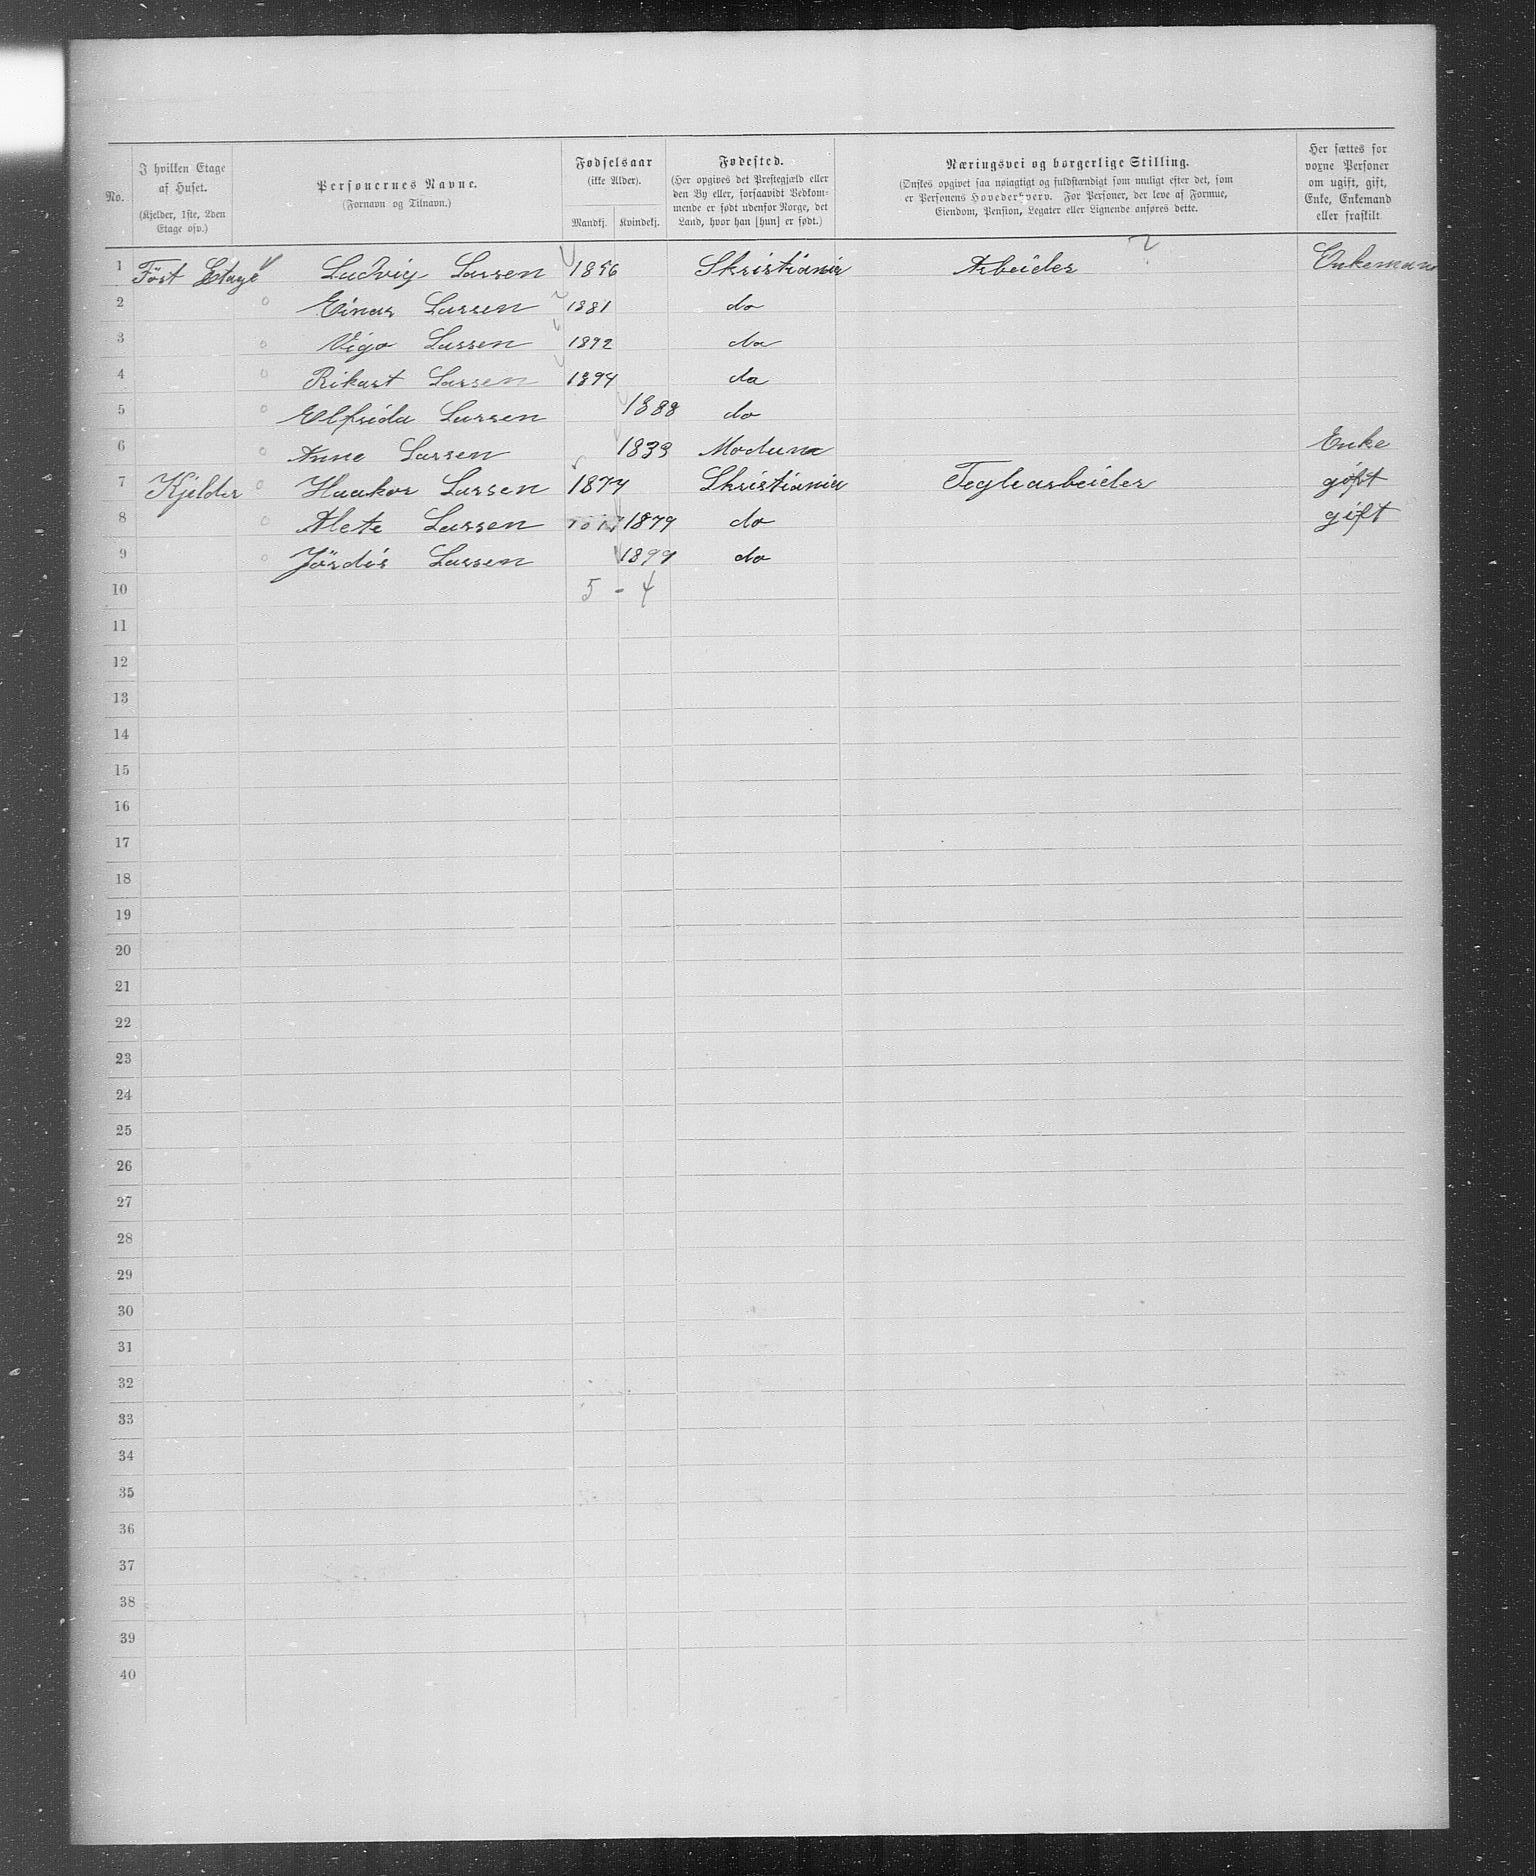 No.
I hvilken Etage af Huset.
(Kjelder, 1ste, 2den Etage osv.)
Personernes Navne.
(Fornavn og Tilnavn.)
Fødselsaar
(ikke Alder).
Mandkj. Kvindekj.
Fødested.
(Her opgives det Prestegjæld eller den By eller, forsaavidt Vedkommende er født udenfor Norge, det Land, hvor han [hun] er født.)
Næringsvei og borgerlige Stilling.
(Ønskes opgivet saa nøiagtigt og fuldstændigt som muligt efter det, som er Personens Hovederhverv. For Personer, der leve af Formue, Eiendom, Pension, Legater eller Lignende anføres dette.
Her sættes for voxne Personer om ugift, gift, Enke, Enkemand eller fraskilt
1 Föst Etage Ludvig Larsen 1856 Skristiania Arbeider ? Enkemann
2 Einar Larsen 1881 do
3 Vigo Larsen 1892 do
4 Rikart Larsen 1894 do
5 Elfrida Larsen 1888 do
6 Anne Larsen 1833 Modum Enke
7 Kjelder Haakor Larsen 1874 Skristiania Teglearbeider gift
8 Alete Larsen 1879 do gift
9 Jördis Larsen 1899 do
10 5 - 4
11
12
13
14
15
16
17
18
19
20
21
22
23
24
25
26
27
28
29
30
31
32
33
34
35
36
37
38
39
40